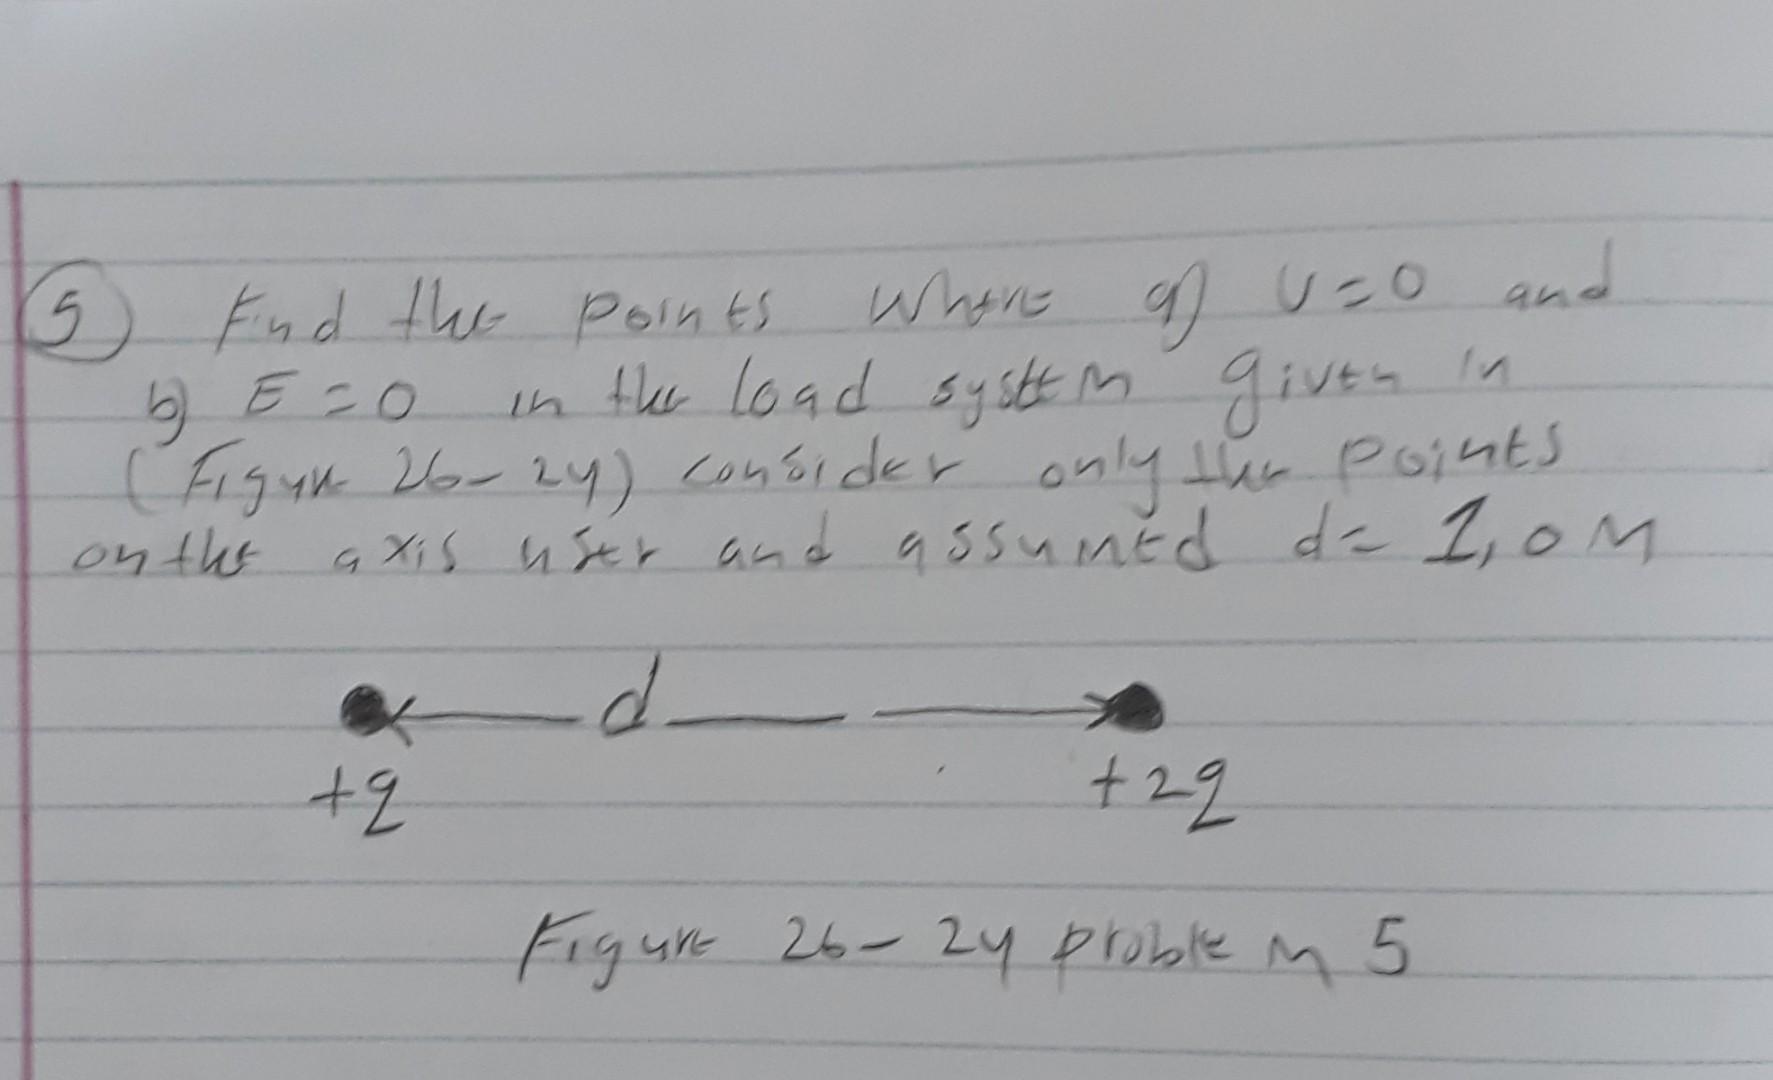 5 Find the points Where a) V=0 and
b) E=0 in the load system given in
(Figure 26-24) consider only the points
on the axis user and assumed d= 1,0 M
d
+q +2q
Figure 26-24 problem 5